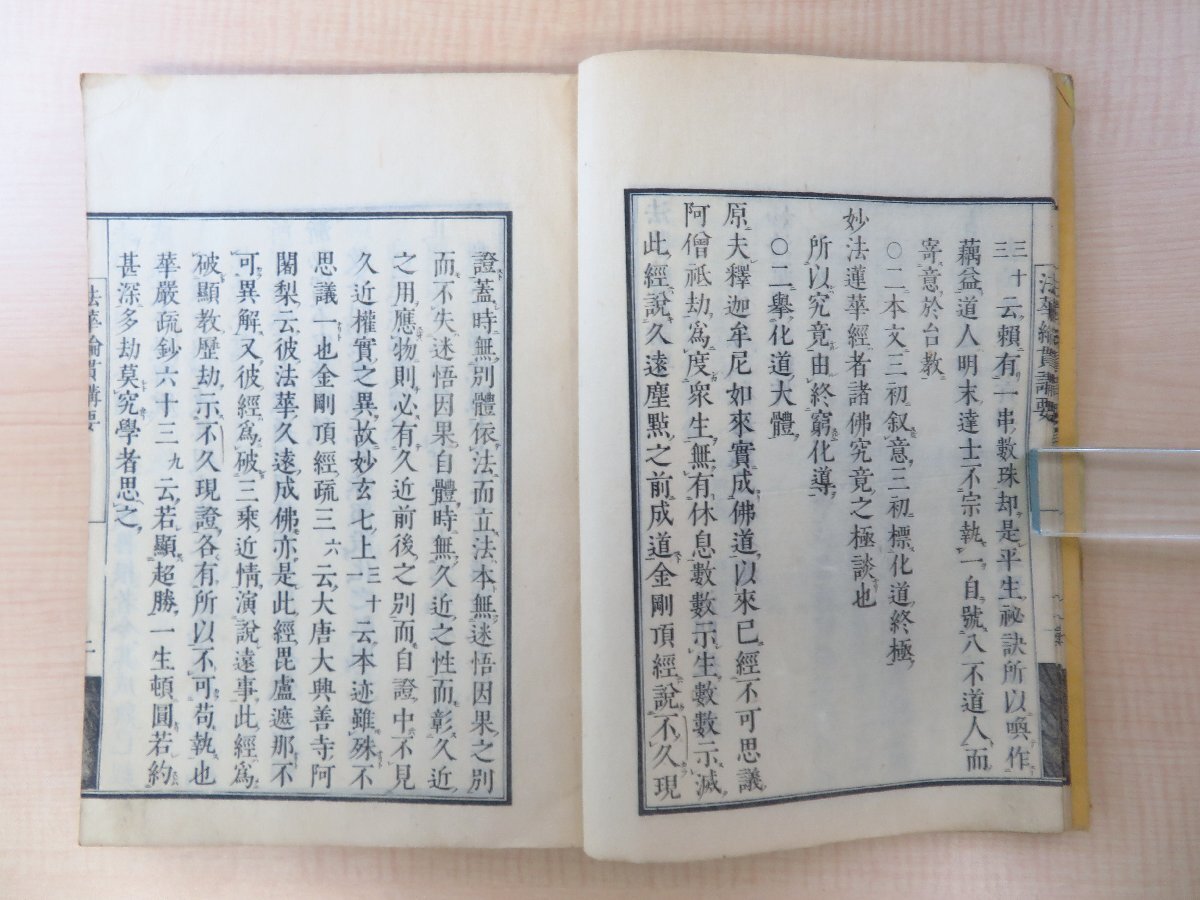 三十三云賴有一串數珠却是平生祕訣所以喚作
藕益道人明末達士不宗執一自號八不道人而
寄意於台教
〇二本文三初叙意三初標化道終極
妙法蓮華經者諸佛究竟之極談也
所以究竟由終窮化導
〇二擧化道大體
原夫釋迦牟尼如來實成佛道以來已經不可思議
阿僧祇劫爲度衆生無有休息數數示生數數示滅
此經說久遠塵點之前成道金剛頂經說不久現
證蓋時無別體依法而立法本無迷悟因果之別
而不失迷悟因果自體時無久近之性而彰久近
之用應物則必有久近前後之別而自證中不見
久近權實之異故妙玄七上三十一云本迹雖殊不
思議一也金剛頂經疏三六云大唐大興善寺阿
闍梨云彼法華久遠成佛亦是此經毘盧遮那不
可異解又彼經爲破三乘近情演說遠事此經爲
破顯教歷劫示不久現證各有所以不可苟執也
華嚴疏鈔六十三九云若顯超勝一生頓圓若約
甚深多劫莫究學者思之
法華綸貫講要
二